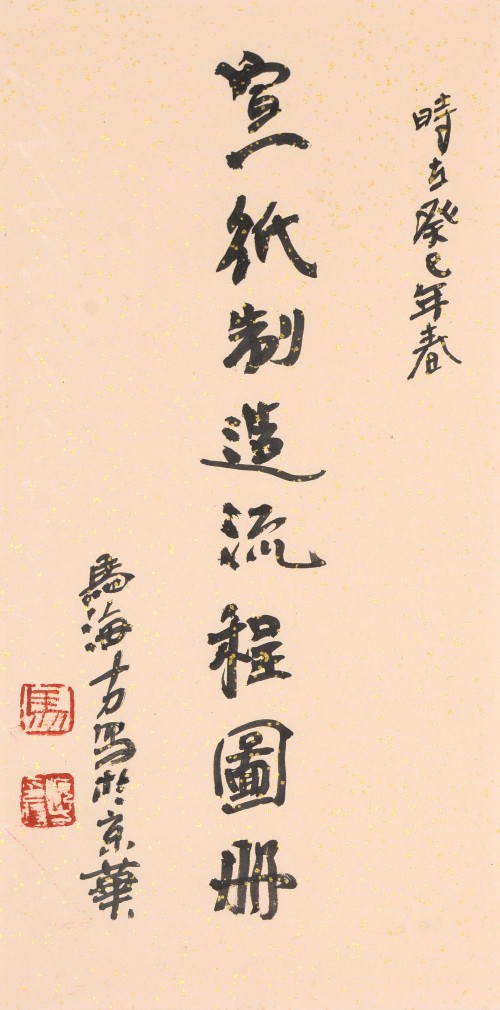 時在癸巳年春
宣紙制造流程圖册
馬海方写於京華
馬